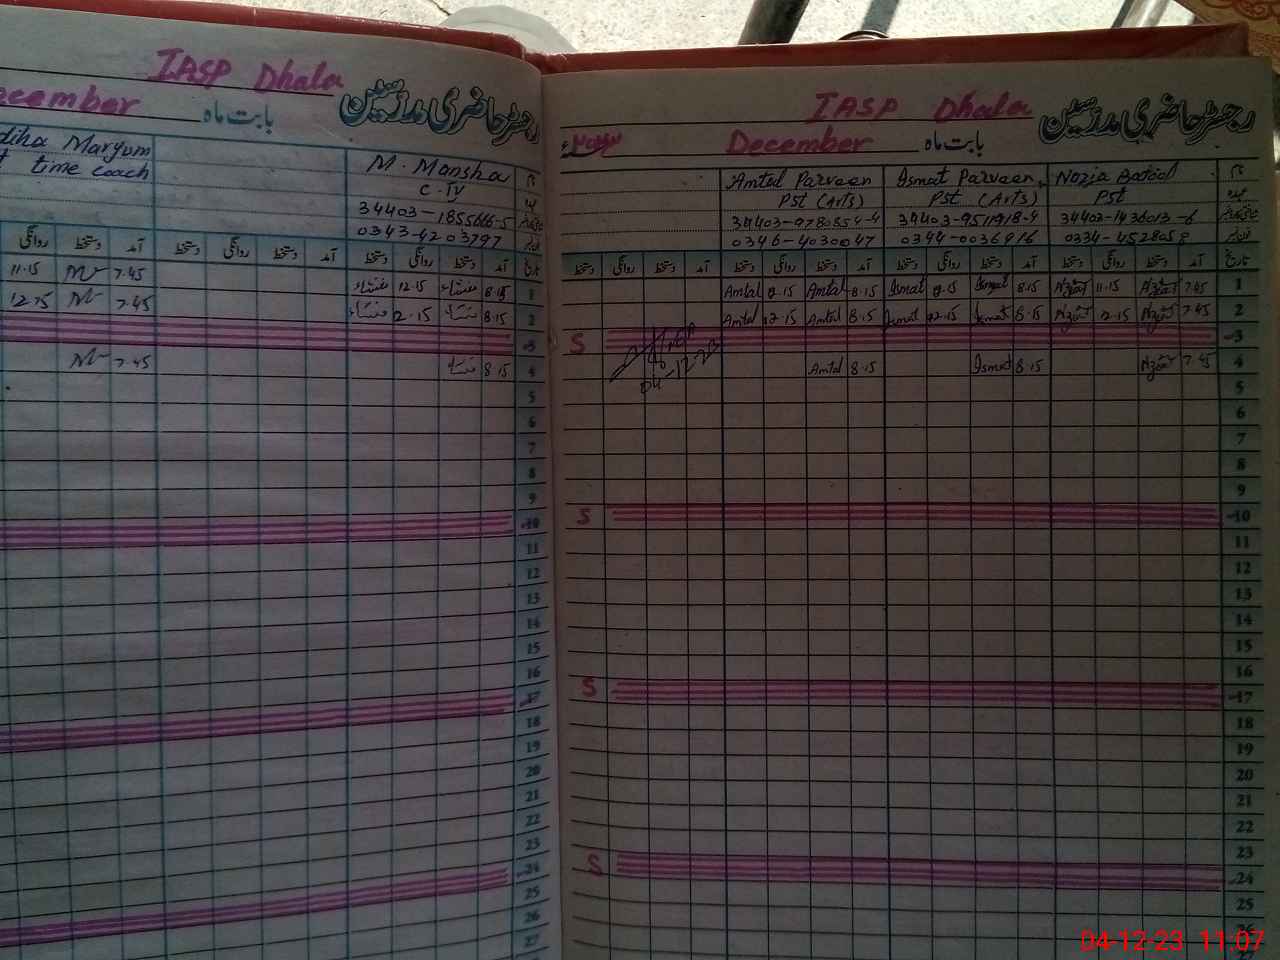 IASP Dhala
رجسٹر حاضری مدرسین
بابت ماہ
Maryum
time coach
M. Mansha
34403-1855666-5
0343-4203797
نام
عہدہ
تاریخ
آمد
دستخط
روانگی
دستخط
آمد
دستخط
روانگی
دستخط
آمد
دستخط
روانگی
1
8.15
12.15
7.45
11.15
2
8.15
12.15
7.45
12.15
3
4
8.15
7.45
5
6
7
8
9
10
11
12
13
14
15
16
17
18
19
20
21
22
23
24
25
26
27
IASP Dhala
رجسٹر حاضری مدرسین
بابت ماہ December
نام Nazia Batool Ismat Parveen Amtul Parveen
عہدہ Pst Pst (Arts) Pst (Arts)
34403-1436013-6 34403-9511918-4 34403-9780854-4
0334-4528058 0344-0036916 0346-4030047
تاریخ
آمد
دستخط
روانگی
دستخط
آمد
دستخط
روانگی
دستخط
آمد
دستخط
روانگی
دستخط
1 7.45 11.15 8.15 Ismat Ismat 8.15 Amtul Amtul
2 7.45 12.15 8.15 Ismat 12.15 Ismat 8.15 Amtul 12.15 Amtul
3 S
4 7.45 8.15 Ismat 8.15 Amtul
04-12-23
5
6
7
8
9
10 S
11
12
13
14
15
16
17 S
18
19
20
21
22
23
24 S
25
26
27
04-12-23 11:07